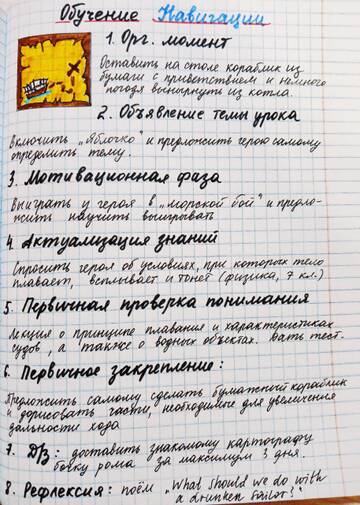 Обучение Навигации
1. Орг. момент
Оставить на столе кораблик из
бумаги с приветствием и немного
погодя вынырнуть из котла.
2. Объявление темы урока
Включить „Яблочко" и предложить герою самому
определить тему.
3. Мотивационная фаза
Выиграть у героя в „морской бой" и предло-
жить научить выигрывать
4. Актуализация знаний
Спросить героя об условиях, при которых тело
плавает, всплывает и тонет (физика, 7 кл.)
5. Первичная проверка понимания
Лекция о принципе плавания и характеристиках
судов, а также о водных объектах. Дать тест.
6. Первичное закрепление:
Предложить самому сделать бумажный кораблик
и дорисовать части, необходимые для увеличения
дальности хода
7. ДЗ: доставить знакомому картографу
бочку рома за максимум 3 дня.
8. Рефлексия: поём „What should we do with
a drunken sailor?"